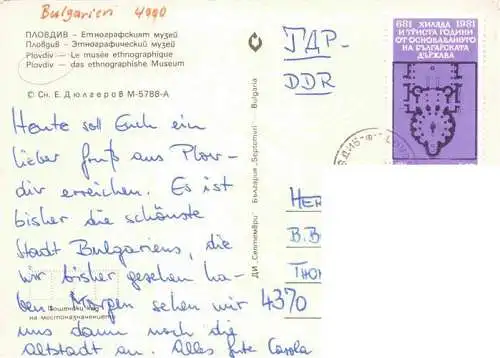 Bulgarien 4000
ПЛОВДИВ – Етнографският музей
Пловдив – Этнографический музей
Plovdiv – Le musée ethnographique
Plovdiv – das ethnographishe Museum
© Сн. Е. Дюлгеров М-5788-А
Heute soll Euch ein
lieber Gruß aus Plov-
div erreichen. Es ist
bisher die schönste
Stadt Bulgariens, die
wir bisher gesehen ha-
ben Morgen sehen wir
uns dann noch die
Altstadt an. Alles Gute Carola
Пощенски код
на местоназначението
ДИ „Септември" България "Septemvri" Bulgaria
ГДР-
DDR
681 ХИЛЯДА 1981
И ТРИСТА ГОДИНИ
ОТ ОСНОВАВАНЕТО
НА БЪЛГАРСКАТА
ДЪРЖАВА
Her
B. B
Thom
4370